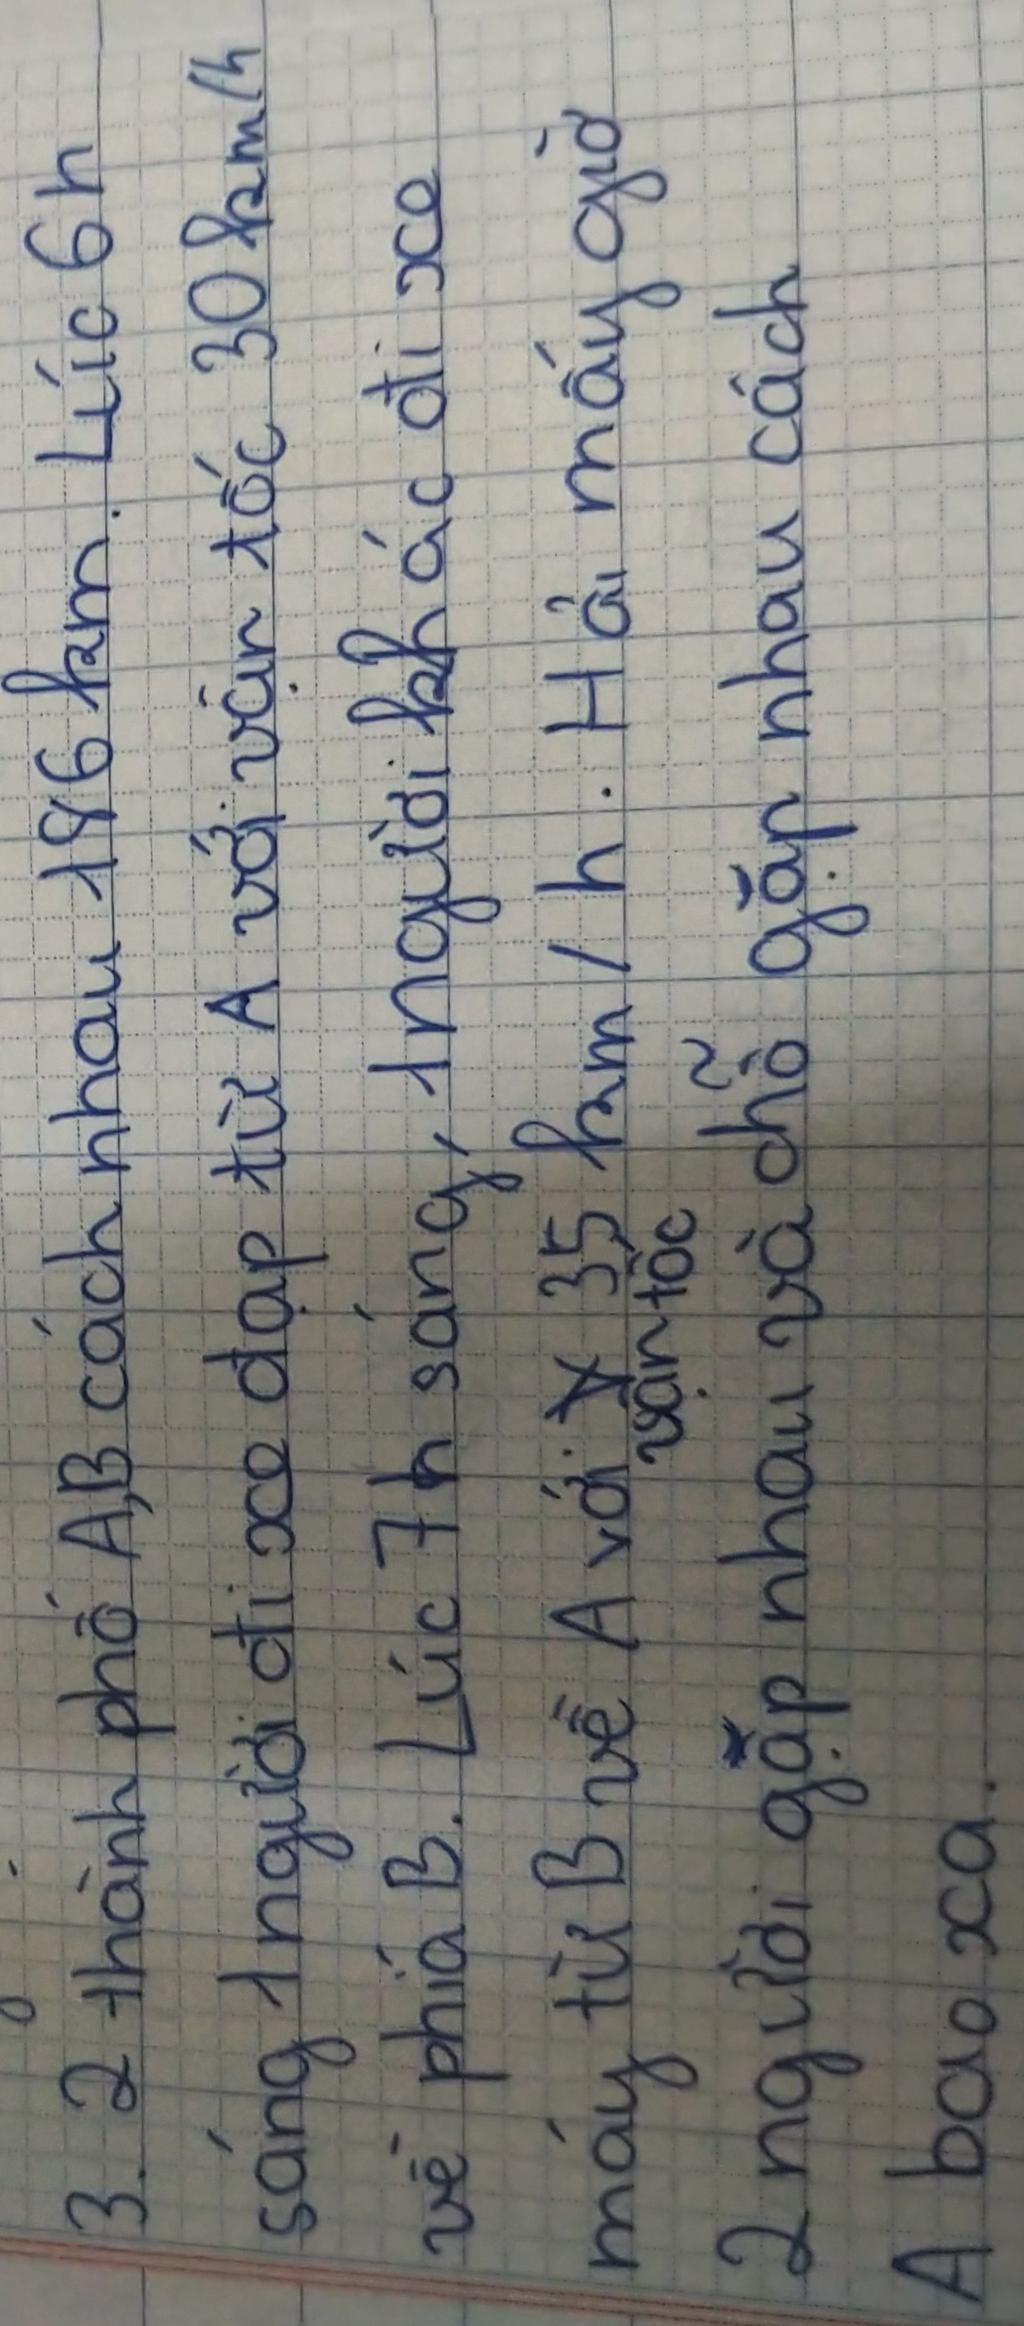 3. 2 thành phố A,B cách nhau 186 km. Lúc 6h
sáng 1 người đi xe đạp từ A với vận tốc 30 km/h
về phía B. Lúc 7h sáng, 1 người khác đi xe
máy từ B về A với 35 km/h. Hỏi mấy giờ
vận tốc
2 người gặp nhau và chỗ gặp nhau cách
A bao xa.